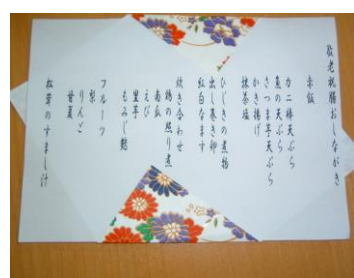 敬老祝膳おしながき
赤飯
カニ棒天ぷら
魚の天ぷら
さつま芋天ぷら
かき揚げ
抹茶塩
ひじきの煮物
出し巻き卵
紅白なます
炊き合わせ
鶏の照り煮
南瓜
えび
里芋
もみじ麩
フルーツ
梨
りんご
甘夏
松茸のすまし汁